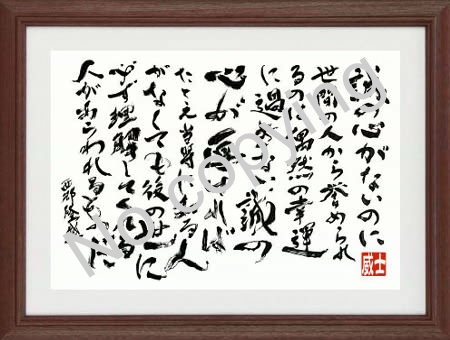 誠の心がないのに
世間の人から誉められ
るのは偶然の幸運
に過ぎない 誠の
心が深ければ
たとえ当時にわかる人
がなくても後の世に
必ず理解してくれる
人があらわれるものだ
西郷隆盛
威士
No copying